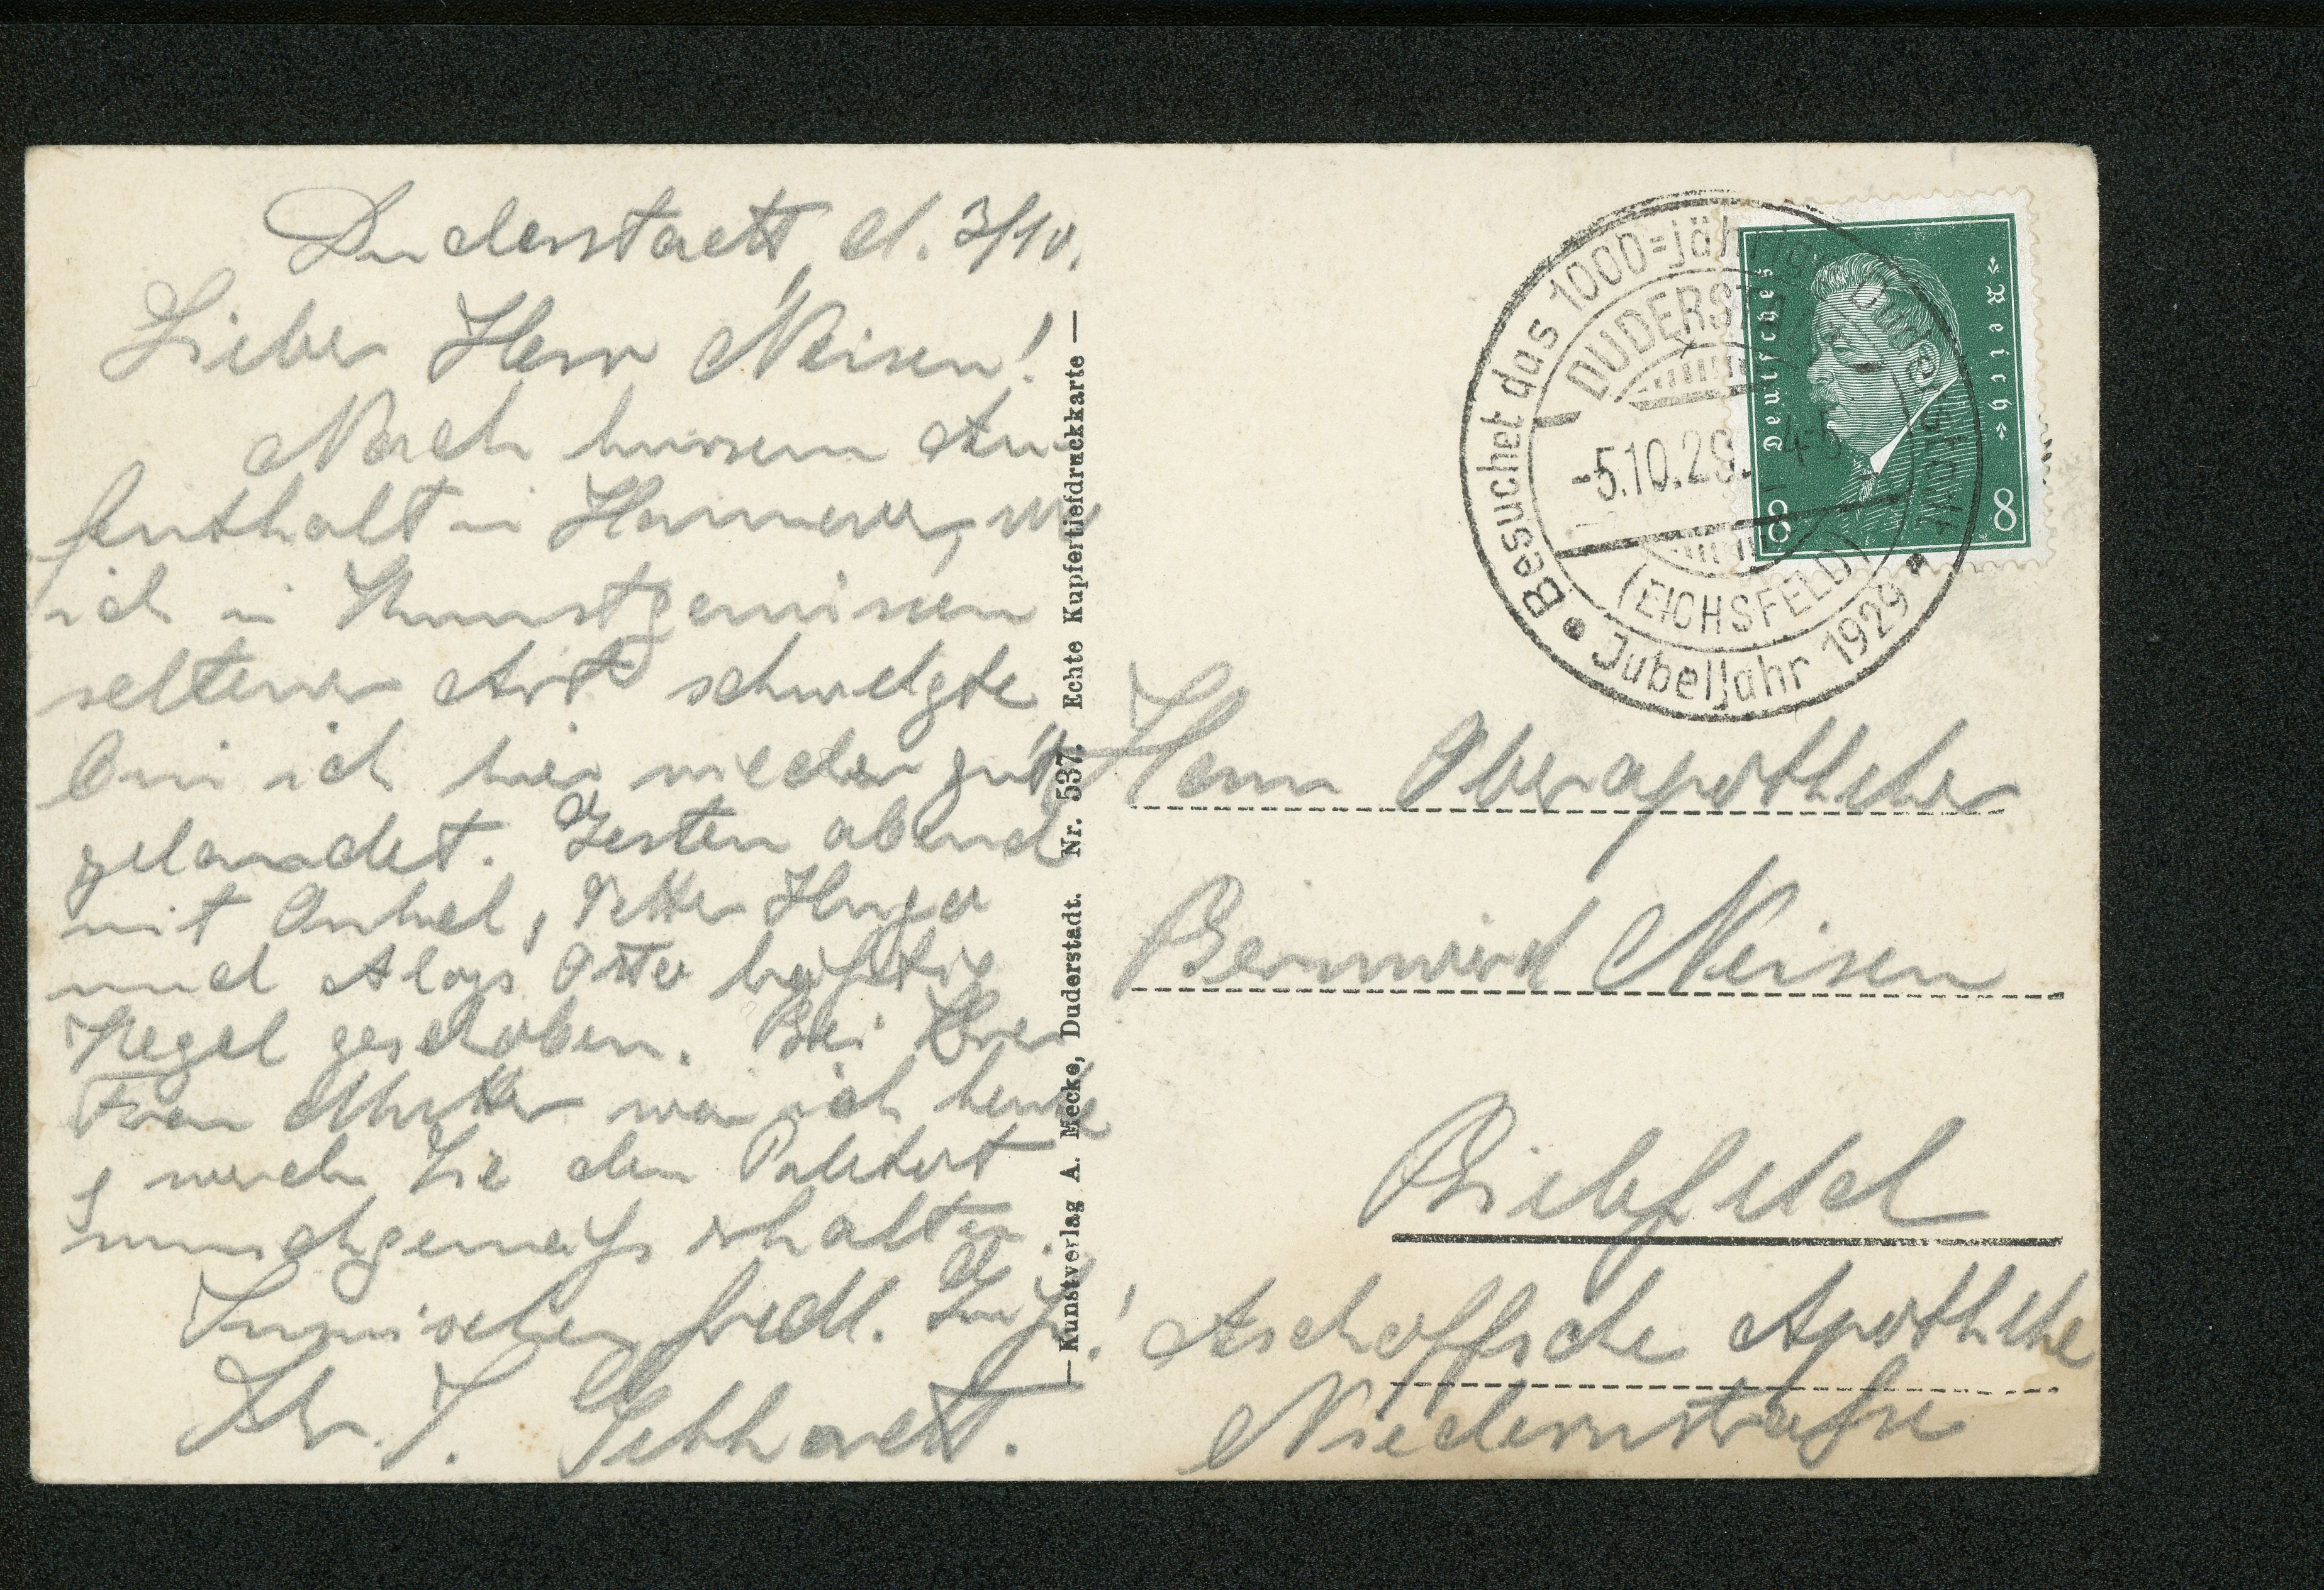 Duderstadt, d. 3/10.
Lieber Herr Neisen!
Nach kurzem Au-
fenthalt in Hannover, wo
ich in Kunstgenüssen
seltener Art schwelgte
bin ich hier wieder gut
gelandet. Gestern abend
mit Onkel, Vetter Hugo
und Aloys Otto kräftig
Kegel geschoben. Bei Ihrer
Frau Mutter war ich heute
werden Sie den Paletot
wunschgemäß erhalten.
Inzwischen freudl. Gruß!
Ihr J. Gebhardt.
— Kunstverlag A. Mecke, Duderstadt. Nr. 537. Echte Kupfertiefdruckkarte —
Besuchet das 1000=jährige Duderstadt
DUDERSTADT
-5.10.29.
(EICHSFELD)
Jubeljahr 1929
Deutsches
Reich
8 8
Herrn Oberapotheker
Bernward Neisen
Bielefeld
Aschoffsche Apotheke
Niedernstraße